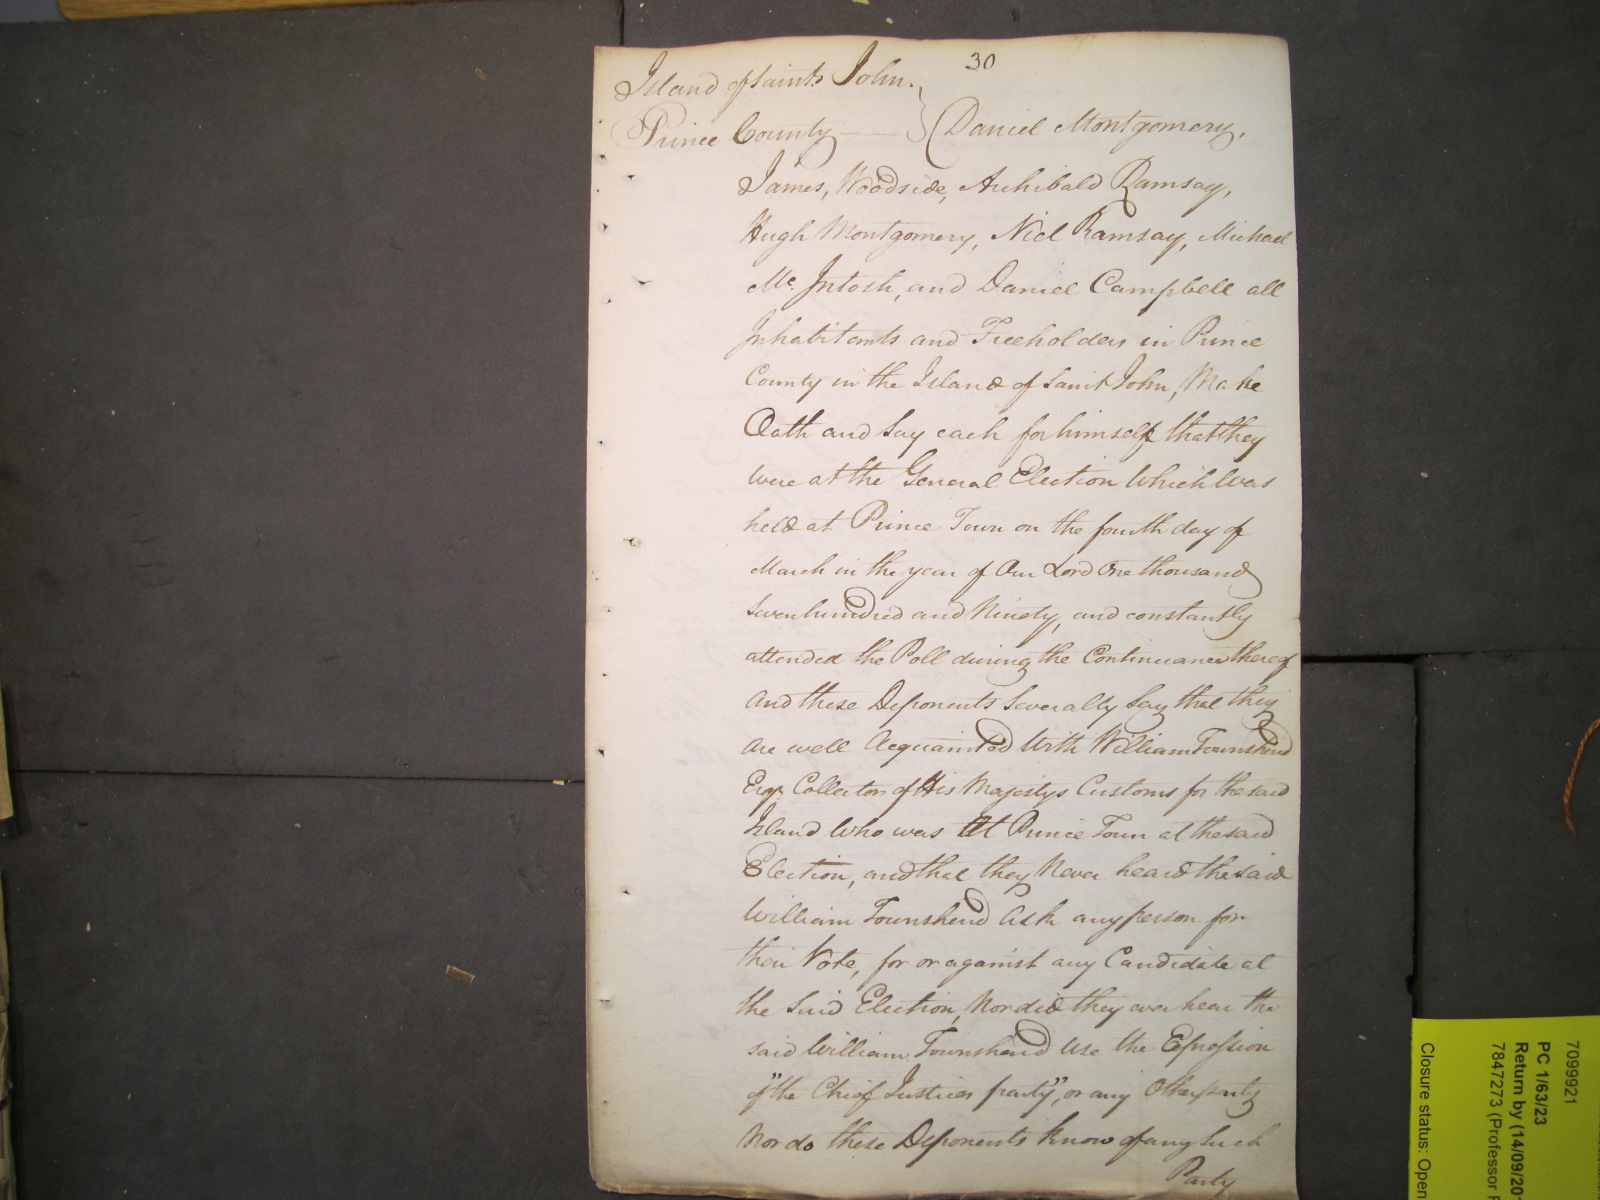 30
Island of Saint John.
Prince County } Daniel Montgomery,
James, Woodside, Archibald Ramsay,
Hugh Montgomery, Niel Ramsay, Michael
Mc. Intosh, and Daniel Campbell all
Inhabitants and Freeholders in Prince
County in the Island of Saint John, Make
Oath and Say each for himself that they
were at the General Election Which Was
held at Prince Town on the fourth day of
March in the year of Our Lord One thousand
Seven hundred and Ninety, and constantly
attended the Poll during the Continuance thereof
And these Deponents Severally Say that they
are well Acquainted With William Townshend
Esqr. Collector of His Majestys Customs for the said
Island Who was At Prince Town at the said
Election, and that they Never heard the said
William Townshend Ask any person for
their Vote, for or against any Candidate at
the Said Election, Nor did they ever hear the
said William Townshend Use the Expression
of "the Chief Justices party", or any Other party
Nor do these Deponents know of any Such
Party
7099921
PC 1/63/23
Return by (14/09/20
7847273 (Professor
Closure status: Open